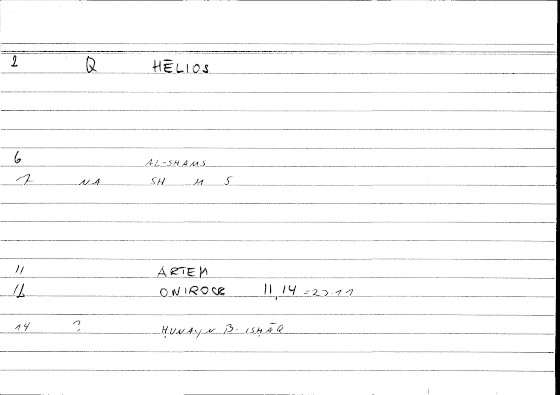 2 Q HĒLIOS
6 AL-SHAMS
7 NA SH M S
11 ARTEM
12 ONIROCR 11,14 = 23 11
14 ? ḤUNAYN B. ISḤĀQ